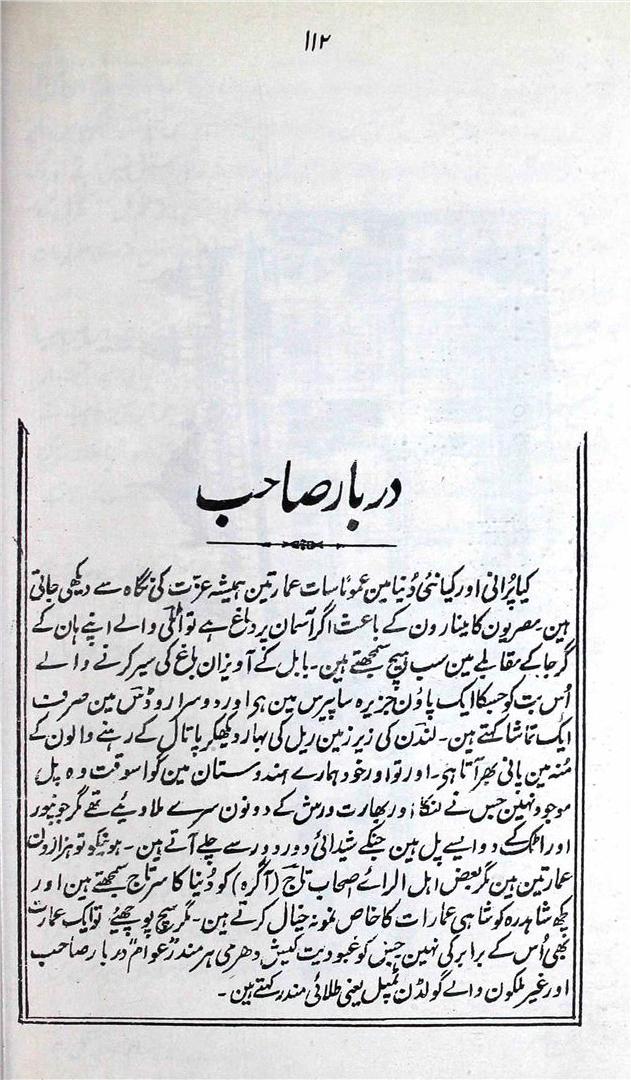 ۱۱۲
دربار صاحب
کیا پُرانی اور کیا نئی دُنیا مین عموماً سات عمارتین ہمیشہ عزّت کی نگاہ سے دیکھی جاتی
ہین۔ مصریون کا مینارون کے باعث اگر آسمان پر دماغ ہے تو اٹلی والے اپنے ہان کے
گرجا کے مقابلے مین سب ہیچ سمجھتے ہین۔ بابل کے آویزان باغ کی سیر کرنے والے
اُس بت کو جسکا ایک پاؤن جزیرہ سایپرس مین ہو اور دوسرا روڈس مین صرف
ایک تماشا کہتے ہین۔ لندن کی زیر زمین ریل کی بہار دیکھکر پاتال کے رہنے والون کے
مُنہ مین پانی بھر آتا ہی۔ اور تو اور خود ہمارے ہندوستان مین گو اسوقت وہ پل
موجود نہین جس نے لنکا اور بھارت ورش کے دونون سرے ملا دیئے تھے مگر جونپور
اور اٹک کے دو ایسے پل ہین جنکے شیدائی دور دور سے چلے آتے ہین۔ ہونیکو تو ہزارون
عمارتین ہین مگر بعض اہل الرائے اصحاب تاج (آگرہ) کو دُنیا کا سرتاج سمجھتے ہین اور
کچھ شاہدرہ کو شاہی عمارات کا خاص نمونہ خیال کرتے ہین۔ مگر سچ پوچھئے تو ایک عمارت
بھی اُس کے برابر کی نہین جس کو عبودیت کیش دھرمی ہرمندر عوام "دربار صاحب
اور غیر ملکون والے گولڈن ٹمپل یعنی طلائی مندر کہتے ہین۔